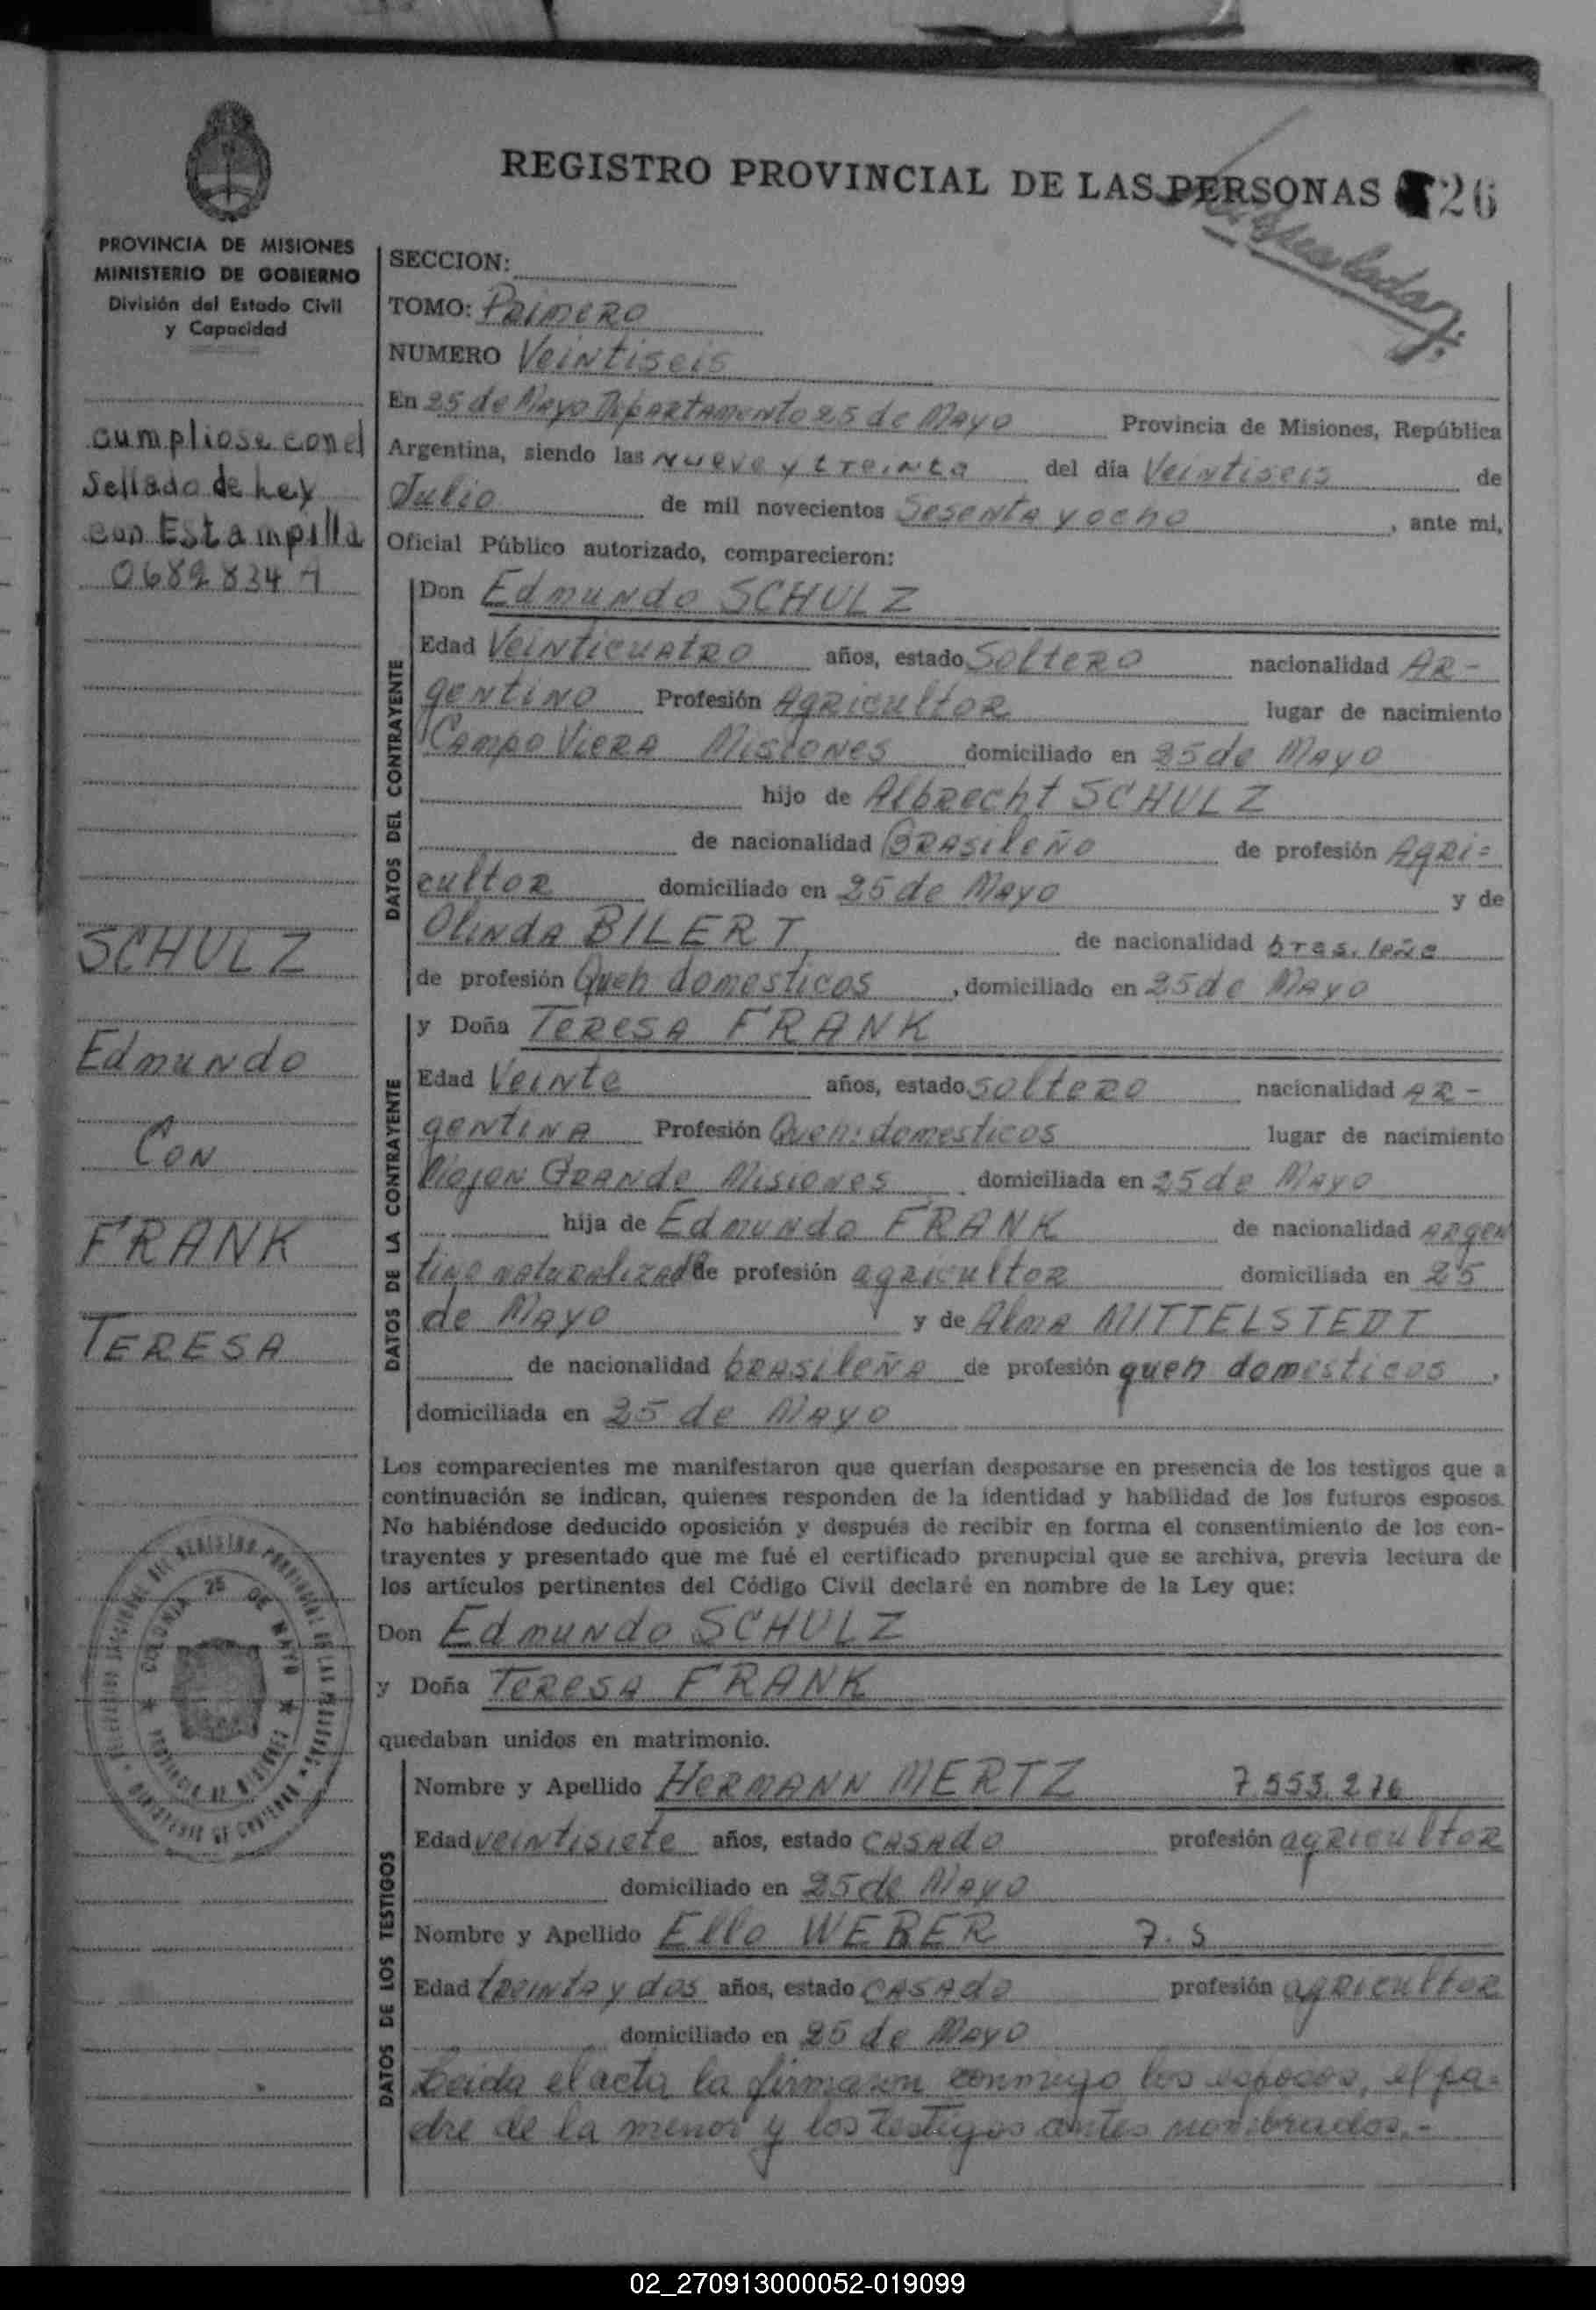 REGISTRO PROVINCIAL DE LAS PERSONAS 26
PROVINCIA DE MISIONES
MINISTERIO DE GOBIERNO
División del Estado Civil
y Capacidad
cumpliose con el
Sellado de Ley
con Estampilla
0682834
SCHULZ
Edmundo
Con
FRANK
TERESA
COLONIA 25 DE MAYO
SECCION:
TOMO: Primero
NUMERO Veintiseis
En 25 de Mayo Departamento 25 de Mayo Provincia de Misiones, República
Argentina, siendo las nueve y treinta del día Veintiseis de
Julio de mil novecientos Sesenta y ocho, ante mi,
Oficial Público autorizado, comparecieron:
DATOS DEL CONTRAYENTE
Don Edmundo SCHULZ
Edad Veinticuatro años, estado Soltero nacionalidad AR-
gentino Profesión Agricultor lugar de nacimiento
Campo Viera Misiones domiciliado en 25 de Mayo
hijo de Albrecht SCHULZ
de nacionalidad Brasileño de profesión Agri=
cultor domiciliado en 25 de Mayo y de
Olinda BILERT de nacionalidad brasileña
de profesión Queh domesticos, domiciliado en 25 de Mayo
DATOS DE LA CONTRAYENTE
y Doña Teresa FRANK
Edad Veinte años, estado soltero nacionalidad AR-
gentina Profesión Queh: domesticos lugar de nacimiento
Mojon Grande Misiones domiciliada en 25 de Mayo
hija de Edmundo FRANK de nacionalidad Argen
tino naturalizado de profesión agricultor domiciliada en 25
de Mayo y de Alma MITTELSTEDT
de nacionalidad brasileña de profesión queh domesticos,
domiciliada en 25 de Mayo
Los comparecientes me manifestaron que querían desposarse en presencia de los testigos que a
continuación se indican, quienes responden de la identidad y habilidad de los futuros esposos.
No habiéndose deducido oposición y después de recibir en forma el consentimiento de los con-
trayentes y presentado que me fué el certificado prenupcial que se archiva, previa lectura de
los artículos pertinentes del Código Civil declaré en nombre de la Ley que:
Don Edmundo SCHULZ
y Doña Teresa FRANK
quedaban unidos en matrimonio.
DATOS DE LOS TESTIGOS
Nombre y Apellido Hermann MERTZ 7.553.276
Edad veintisiete años, estado casado profesión agricultor
domiciliado en 25 de Mayo
Nombre y Apellido Ello WEBER 7. 5
Edad treinta y dos años, estado casado profesión agricultor
domiciliado en 25 de Mayo
Leida el acta la firmaron conmigo los esposos, el pa=
dre de la menor y los testigos antes nombrados.-
02_270913000052-019099